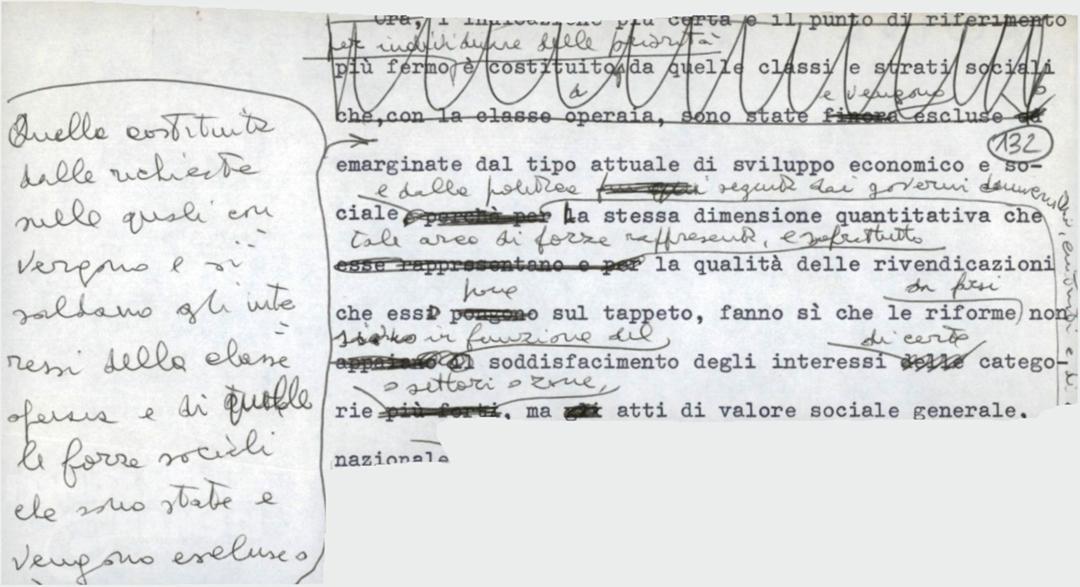 Ora, l'indicazione più certa e il punto di riferimento
per individuare delle priorità
più fermo è costituito da quelle classi e strati sociali
e vengono
che, con la classe operaia, sono state finora escluse ed
132
emarginate dal tipo attuale di sviluppo economico e so-
e dalla politica seguita dai governi
ciale e perchè per la stessa dimensione quantitativa che
tale arco di forze rappresenta, e soprattutto
esse rappresentano e per la qualità delle rivendicazioni
da farsi
pone
che essi pongono sul tappeto, fanno sì che le riforme non
siano in funzione del di certe
appaiano al soddisfacimento degli interessi delle catego-
o settori o zone,
rie più forti, ma gli atti di valore sociale generale.
nazionale
Quella costituita
dalle richieste
nelle quali con
vergono e si
saldano gli inte
ressi della classe
operaia e di quelle
le forze sociali
che sono state e
vengono escluse o